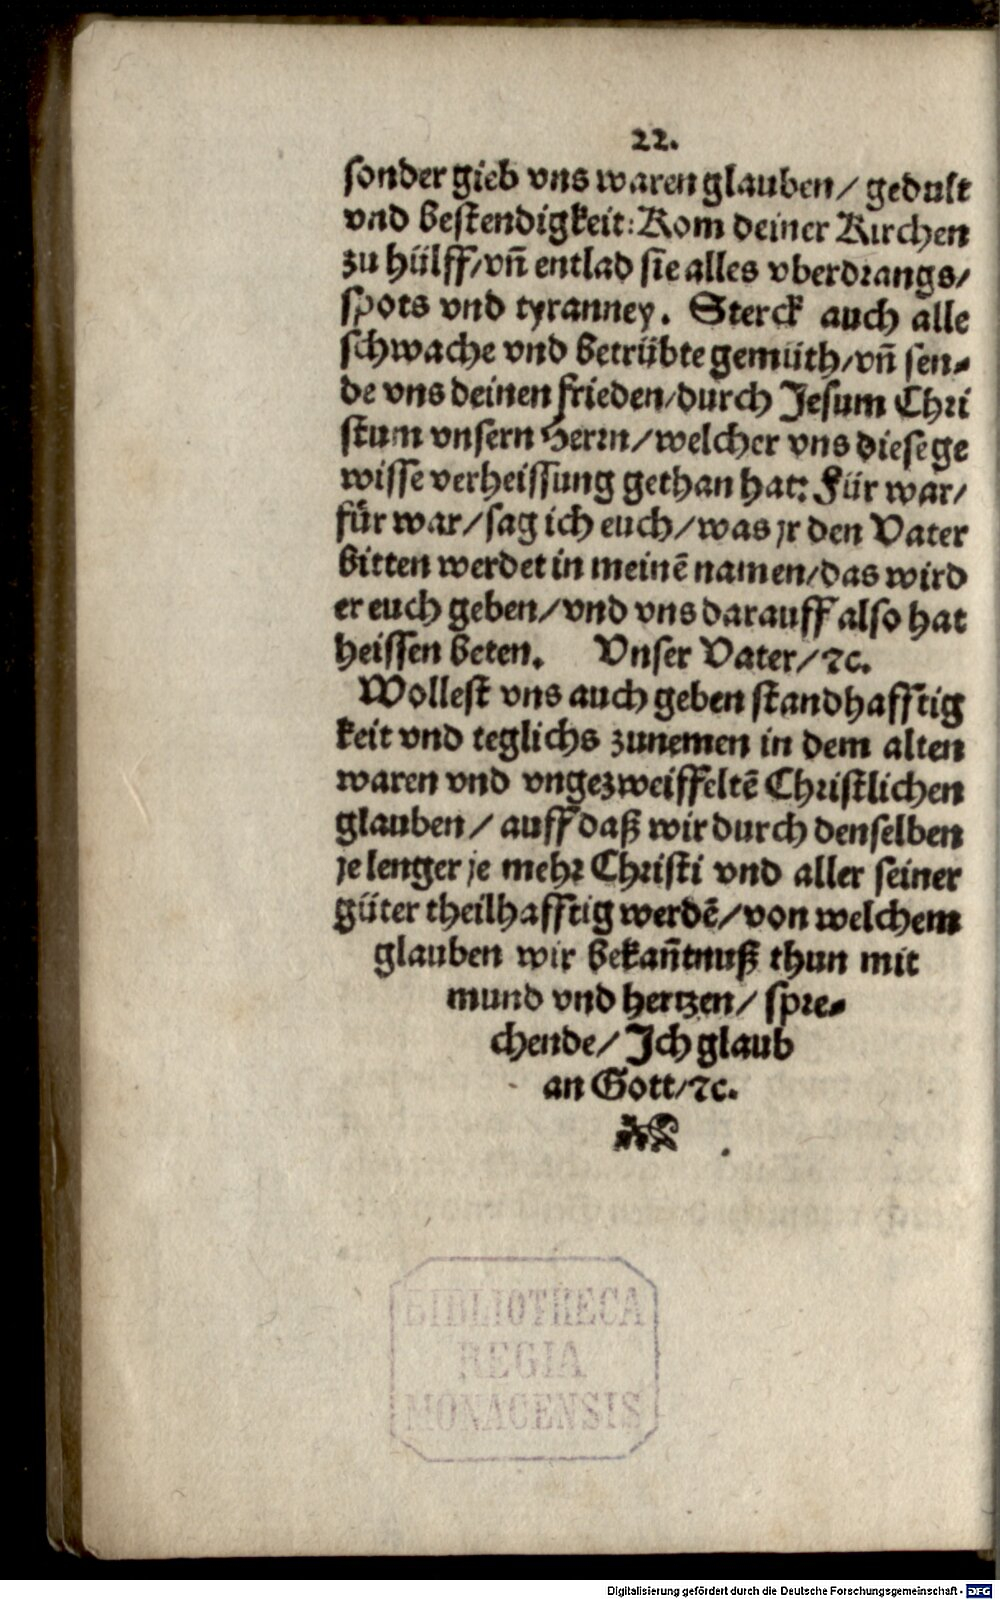 22.
sonder gieb vns waren glauben/ gedult
vnd bestendigkeit: Kom deiner Kirchen
zu hülff/vn̄ entlad sie alles vberdrangs/
spots vnd tyranney. Sterck auch alle
schwache vnd betrübte gemüth/vn̄ sen-
de vns deinen frieden/durch Jesum Chri
stum vnsern Herrn/welcher vns diese ge
wisse verheissung gethan hat: Für war/
für war/sag ich euch/was jr den Vater
bitten werdet in meinē namen/das wird
er euch geben/vnd vns darauff also hat
heissen beten. Vnser Vater/ꝛc.
Wollest vns auch geben standhafftig
keit vnd teglichs zunemen in dem alten
waren vnd vngezweiffeltē Christlichen
glauben/ auff daß wir durch denselben
je lenger je mehr Christi vnd aller seiner
güter theilhafftig werdē/von welchem
glauben wir bekan̄tnuß thun mit
mund vnd hertzen/ spre-
chende/ Ich glaub
an Gott/ꝛc.
BIBLIOTHECA
REGIA
MONACENSIS
Digitalisierung gefördert durch die Deutsche Forschungsgemeinschaft - DFG